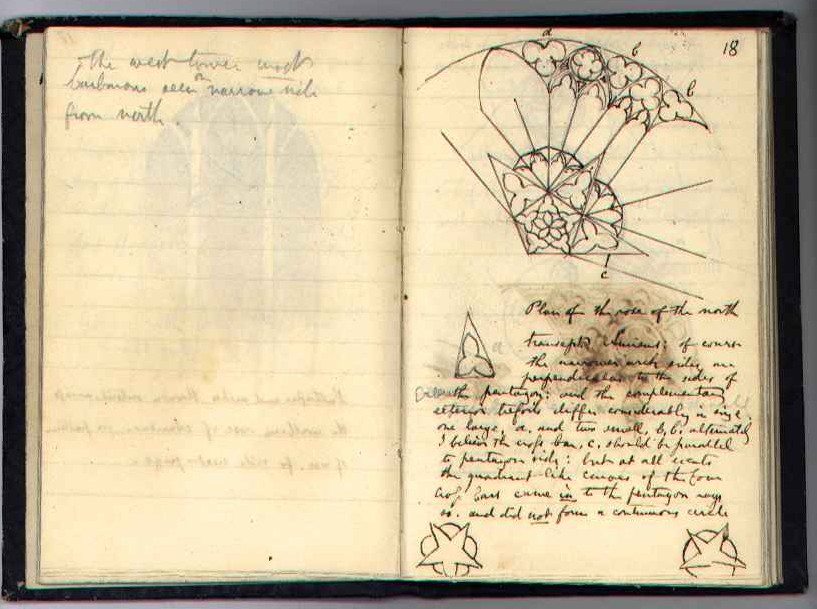 the west tower most
barbarous seen on narrow side
from north.
18
a
b
b
c
Plan of the rose of the north
transept Amiens: of course
the narrower arch sides are
perpendicular to the sides of
a
the pentagon: and the complementary
exterior trefoils differ considerably in size
one large, a, and two small, b, b, alternately
I believe the cross bar, c, should be parallel
to pentagon side: but at all events
the quadrant like curves of the four
cross bars came in to the pentagon rays
so. and did not form a continuous circle